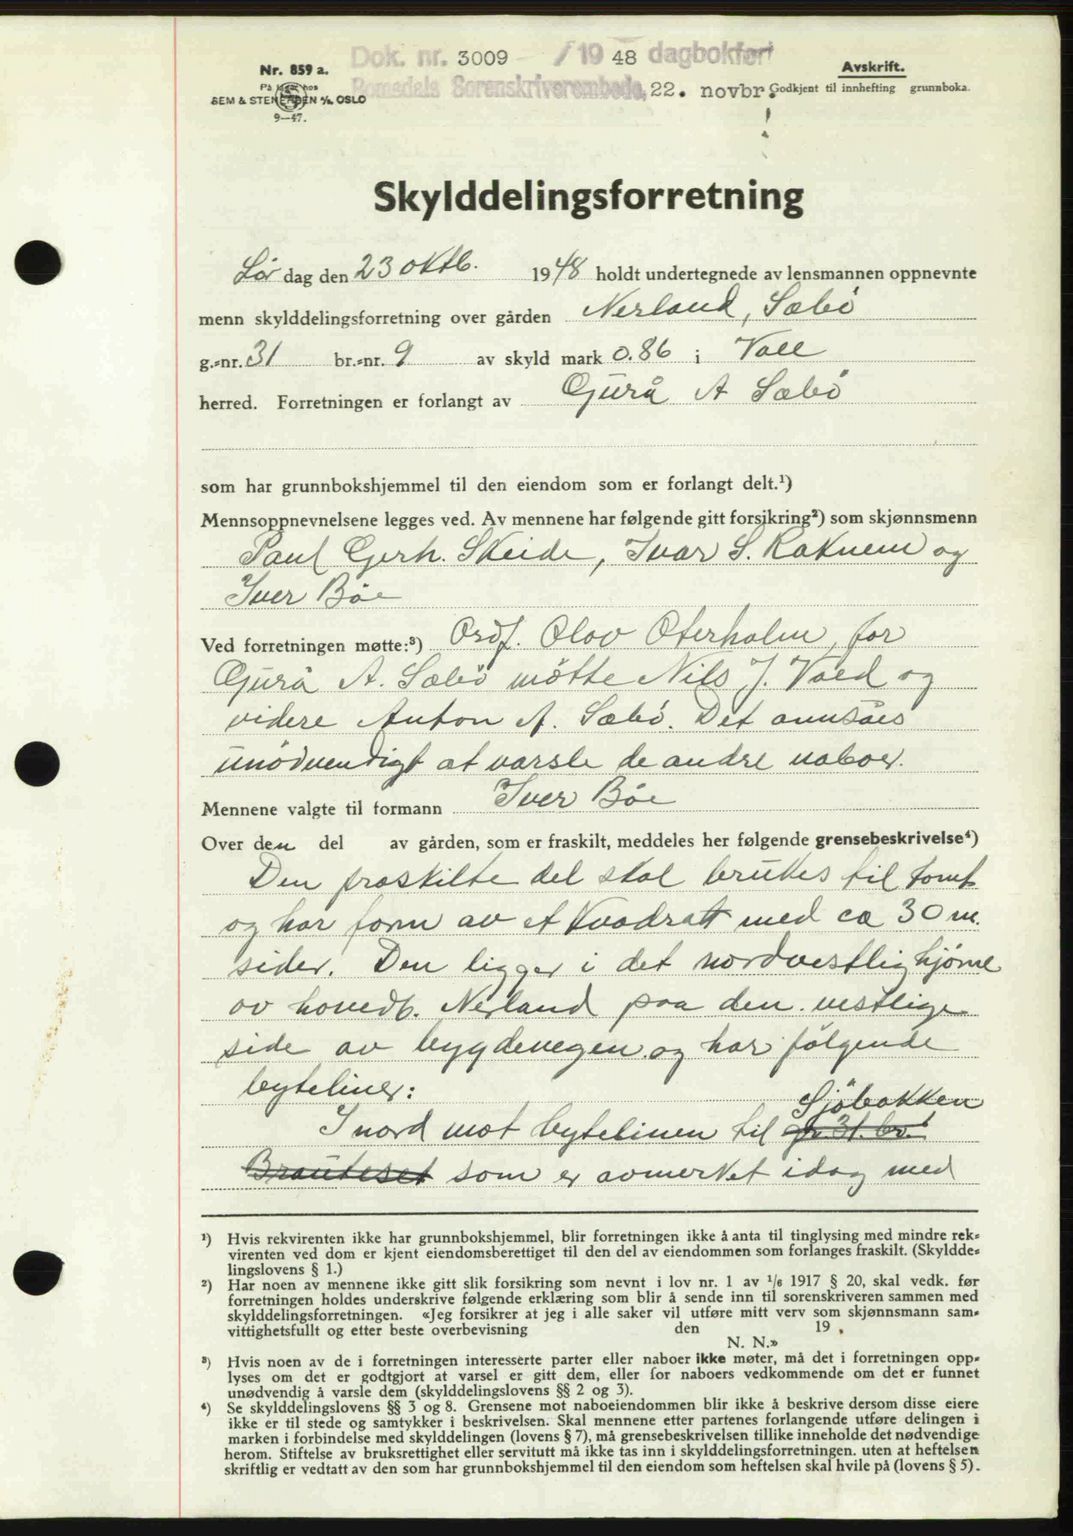 Dok. nr. 3009 / 19 48 dagbokført
Romsdals Sorenskriverembede, 22. novbr.
Nr. 859 a.
På lager hos
SEM & STENERSEN A/S, OSLO
9—47.
Avskrift.
Godkjent til innhefting grunnboka.
Skylddelingsforretning
Lør dag den 23 oktb. 1948 holdt undertegnede av lensmannen oppnevnte
menn skylddelingsforretning over gården Nerland, Sæbö
g.-nr. 31 br.-nr. 9 av skyld mark 0.86 i Voll
herred. Forretningen er forlangt av Gurå A Sæbö
som har grunnbokshjemmel til den eiendom som er forlangt delt.¹)
Mennsoppnevnelsene legges ved. Av mennene har følgende gitt forsikring²) som skjønnsmenn
Paul Gerh. Skeide, Ivar S. Raknem og
Iver Böe
Ved forretningen møtte:³) Ordf. Olov Oterholm, for
Gurå A. Sæbö mötte Nils J. Voll og
videre Anton A. Sæbö. Det annsåes
unödvendigt at varsle de andre naboer.
Mennene valgte til formann Iver Böe
Over den del av gården, som er fraskilt, meddeles her følgende grensebeskrivelse⁴)
Den fraskilte del skal brukes til tomt
og har form av et kvadratt med ca 30 m.
sider. Den ligger i det nordvestlig hjörne
av hovedb. Nerland paa den vestlige
side av bygdevegen og har fölgende
byteliner:
Sjöbakken
I nord mot bytelinen til gr. 31. br.
Brauteset som er avmerket idag med
¹) Hvis rekvirenten ikke har grunnbokshjemmel, blir forretningen ikke å anta til tinglysing med mindre rek-
virenten ved dom er kjent eiendomsberettiget til den del av eiendommen som forlanges fraskilt. (Skyldde-
lingslovens § 1.)
²) Har noen av mennene ikke gitt slik forsikring som nevnt i lov nr. 1 av 1/6 1917 § 20, skal vedk. før
forretningen holdes underskrive følgende erklæring som blir å sende inn til sorenskriveren sammen med
skylddelingsforretningen. «Jeg forsikrer at jeg i alle saker vil utføre mitt verv som skjønnsmann sam-
vittighetsfullt og etter beste overbevisning den 19 .
N. N.»
³) Hvis noen av de i forretningen interesserte parter eller naboer ikke møter, må det i forretningen opp-
lyses om det er godtgjort at varsel er gitt dem, eller for naboers vedkommende om det er funnet
unødvendig å varsle dem (skylddelingslovens §§ 2 og 3).
⁴) Se skylddelingslovens §§ 3 og 8. Grensene mot naboeiendommen blir ikke å beskrive dersom disse eiere
ikke er til stede og samtykker i beskrivelsen. Skal mennene etter partenes forlangende utføre delingen i
marken i forbindelse med skylddelingen (lovens § 7), må grensebeskrivelsen tillike inneholde det nødvendige
herom. Stiftelse av bruksrettighet eller servitutt må ikke tas inn i skylddelingsforretningen. uten at heftelsen
skriftlig er vedtatt av den som har grunnbokshjemmel til den eiendom som heftelsen skal hvile på (lovens § 5).